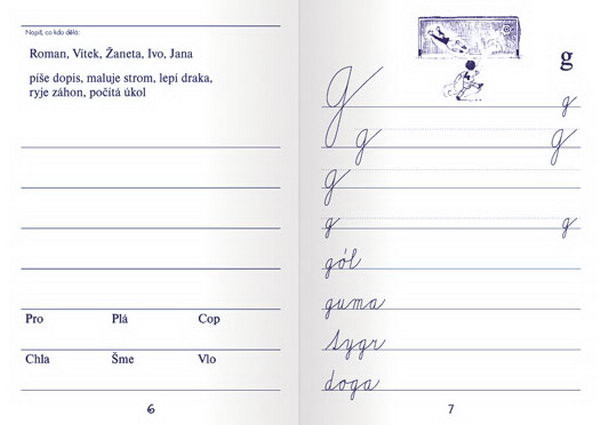 Napiš, co kdo dělá:
Roman, Vítek, Žaneta, Ivo, Jana
píše dopis, maluje strom, lepí draka,
ryje záhon, počítá úkol
Pro Plá Cop
Chla Šme Vlo
6
g
g g
g g
g
g g
gól
guma
tygr
doga
7